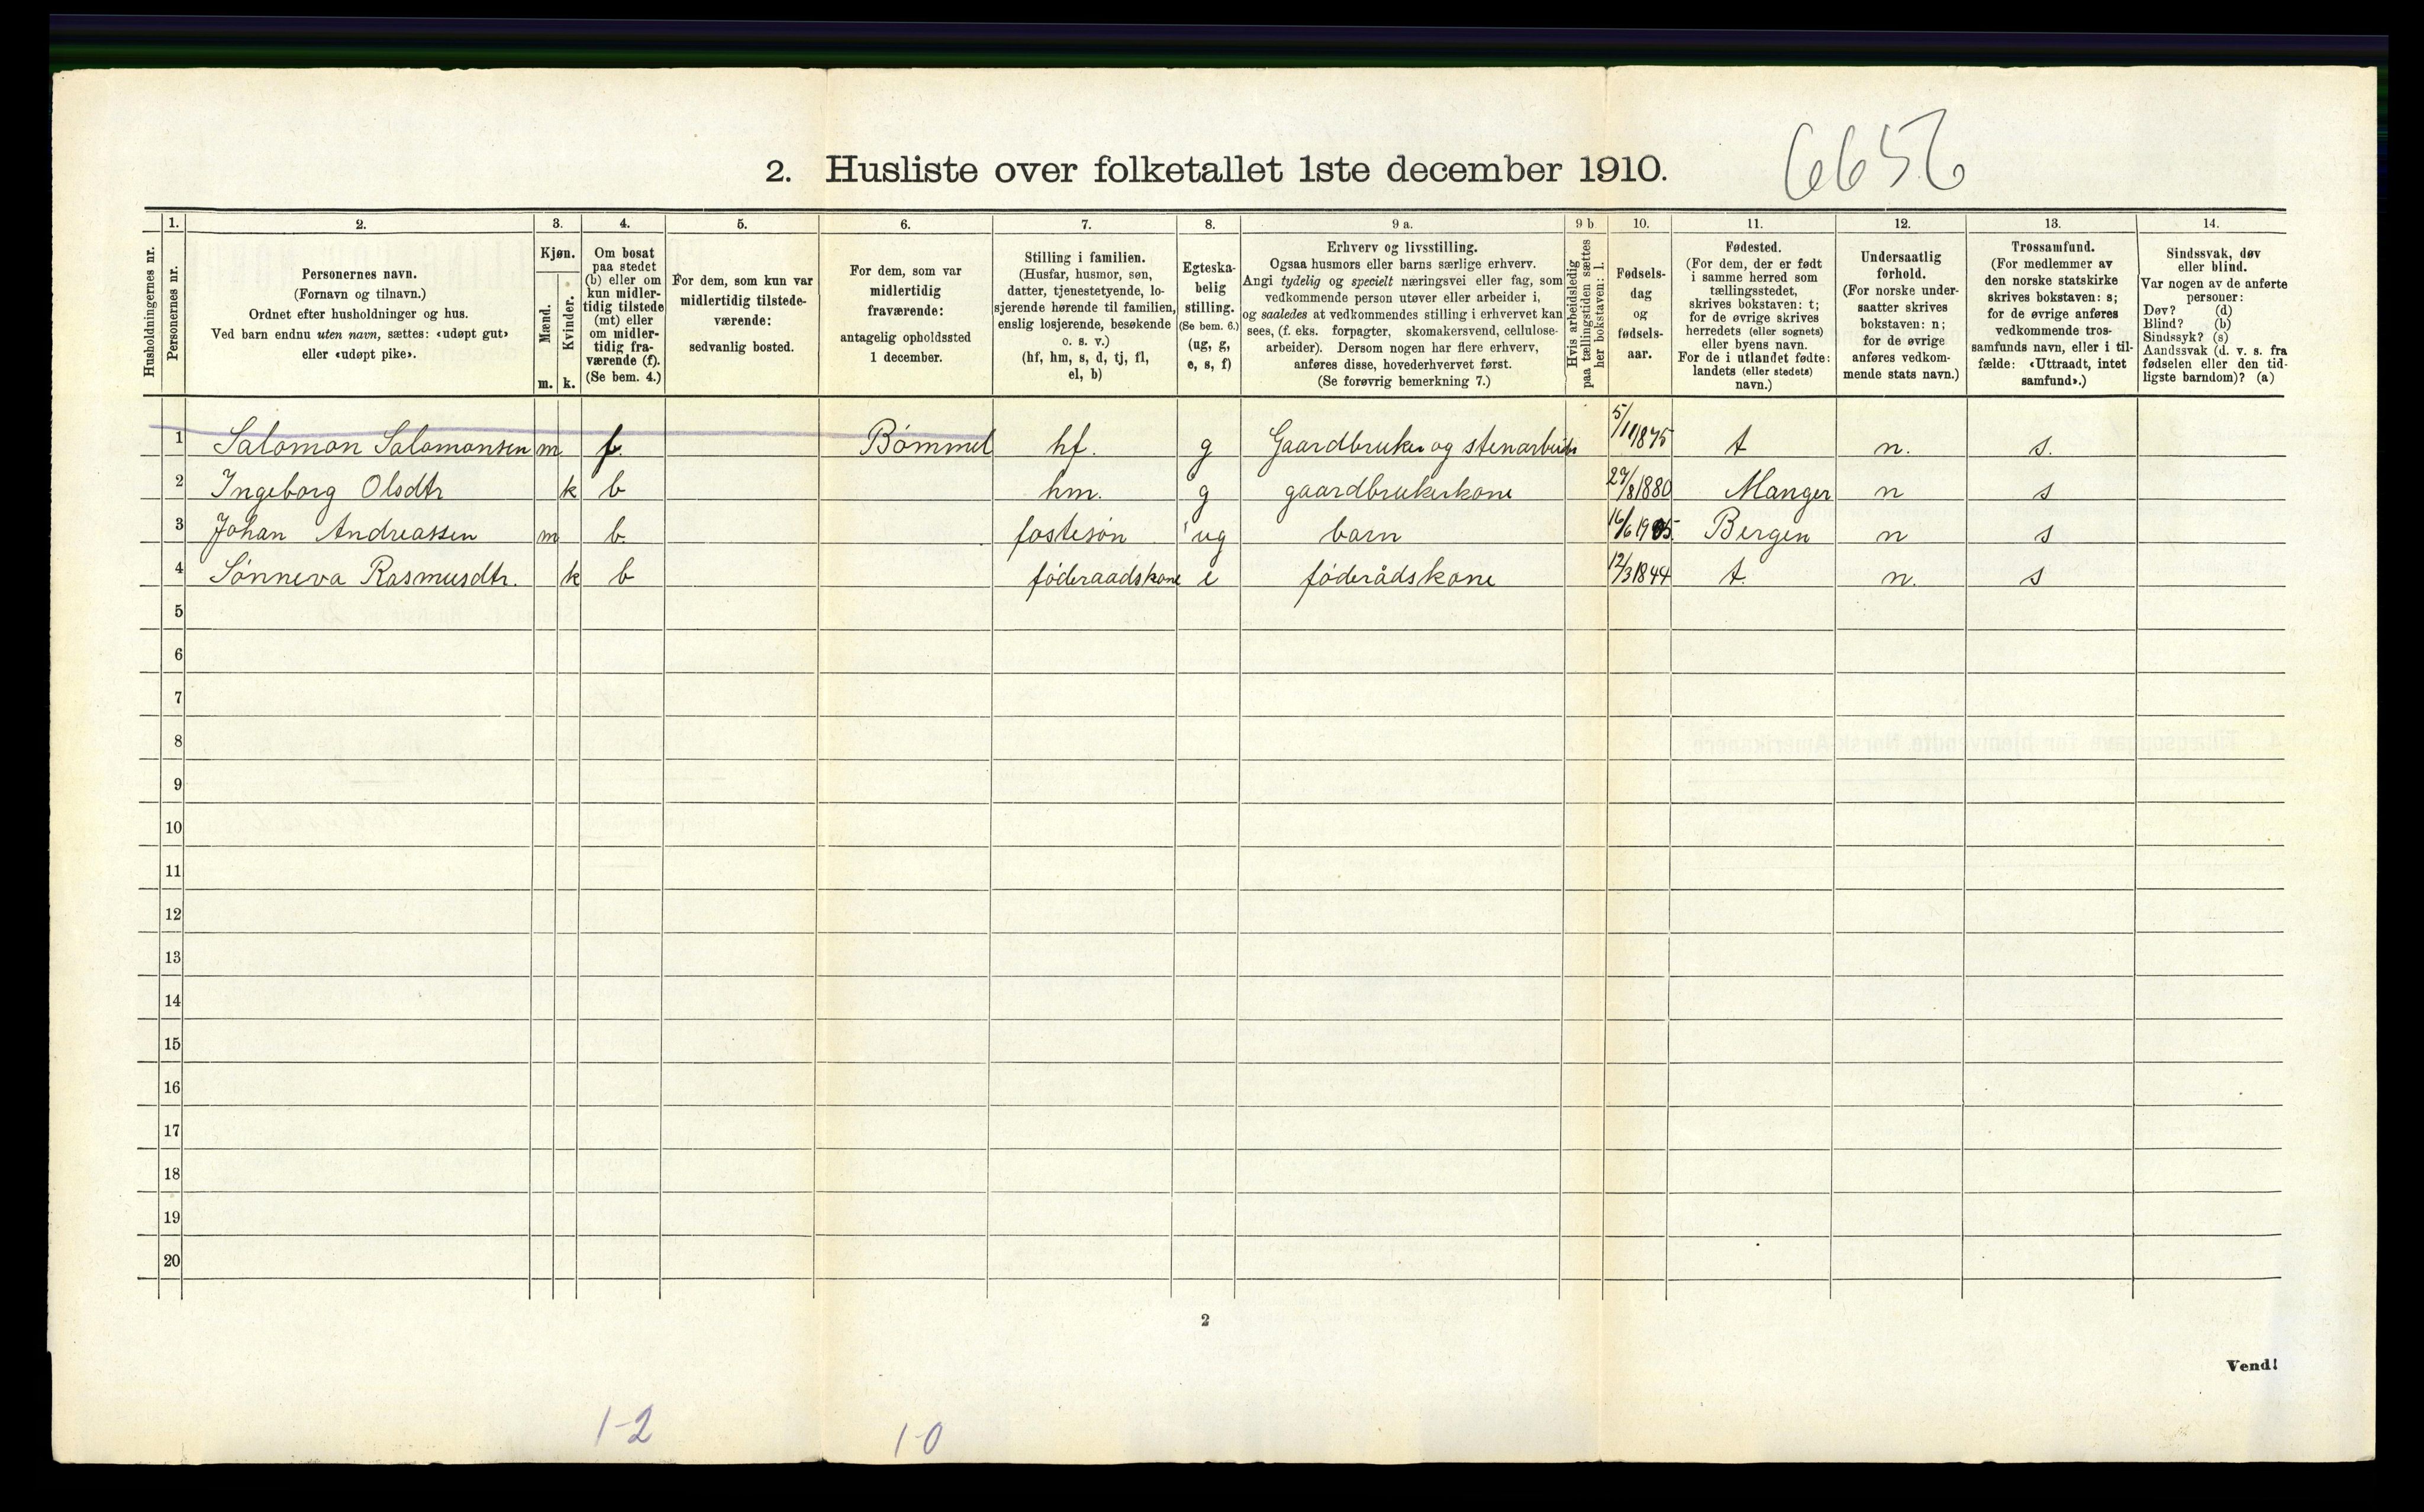 6656
2. Husliste over folketallet 1ste december 1910.
Husholdningernes nr.
1.
Personernes nr.
2.
Personernes navn.
(Fornavn og tilnavn.)
Ordnet efter husholdninger og hus.
Ved barn endnu uten navn, sættes: «udøpt gut»
eller «udøpt pike».
3.
Kjøn.
Mænd.
m.
Kvinder.
k.
4.
Om bosat
paa stedet
(b) eller om
kun midler-
tidig tilstede
(mt) eller
om midler-
tidig fra-
værende (f).
(Se bem. 4.)
5.
For dem, som kun var
midlertidig tilstede-
værende:
sedvanlig bosted.
6.
For dem, som var
midlertidig
fraværende:
antagelig opholdssted
1 december.
7.
Stilling i familien.
(Husfar, husmor, søn,
datter, tjenestetyende, lo-
sjerende hørende til familien,
enslig losjerende, besøkende
o. s. v.)
(hf, hm, s, d, tj, fl,
el, b)
8.
Egteska-
belig
stilling.
(Se bem. 6.)
(ug, g,
e, s, f)
9 a.
Erhverv og livsstilling.
Ogsaa husmors eller barns særlige erhverv.
Angi tydelig og specielt næringsvei eller fag, som
vedkommende person utøver eller arbeider i,
og saaledes at vedkommendes stilling i erhvervet kan
sees, (f. eks. forpagter, skomakersvend, cellulose-
arbeider). Dersom nogen har flere erhverv,
anføres disse, hovederhvervet først.
(Se forøvrig bemerkning 7.)
9 b
Hvis arbeidsledig
paa tællingstiden sættes
her bokstaven: l.
10.
Fødsels-
dag
og
fødsels-
aar.
11.
Fødested.
(For dem, der er født
i samme herred som
tællingsstedet,
skrives bokstaven: t;
for de øvrige skrives
herredets (eller sognets)
eller byens navn.
For de i utlandet fødte:
landets (eller stedets)
navn.)
12.
Undersaatlig
forhold.
(For norske under-
saatter skrives
bokstaven: n;
for de øvrige
anføres vedkom-
mende stats navn.)
13.
Trossamfund.
(For medlemmer av
den norske statskirke
skrives bokstaven: s;
for de øvrige anføres
vedkommende tros-
samfunds navn, eller i til-
fælde: «Uttraadt, intet
samfund».)
14.
Sindssvak, døv
eller blind.
Var nogen av de anførte
personer:
Døv? (d)
Blind? (b)
Sindssyk? (s)
Aandssvak (d. v. s. fra
fødselen eller den tid-
ligste barndom)? (a)
1 Salomon Salomonsen m f. Bømmel hf. g Gaardbruker og stenarbeider 5/11 1875 t n. s.
2 Ingeborg Olsdtr k b hm. g gaardbrukerkone 29/8 1880 Manger n s
3 Johan Andreassen m b. fostesøn ug barn 16/6 1905 Bergen n s
4 Sønneva Rasmusdtr. k b føderaadskone e føderådskone 12/3 1844 t. n. s
5
6
7
8
9
10
11
12
13
14
15
16
17
18
19
20
2
Vend!
1-2
1-0